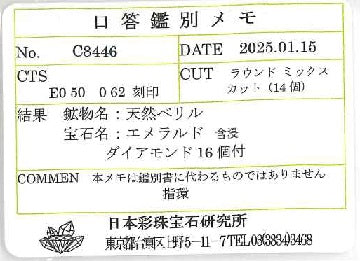 口答鑑別メモ
No. C8446 DATE 2025.01.15
CTS CUT ラウンド ミックス
E0 50 0 62 刻印 カット (14個)
結果 鉱物名：天然ベリル
宝石名：エメラルド 含浸
ダイアモンド16個付
COMMEN 本メモは鑑別書に代わるものではありません
指環
日本彩珠宝石研究所
東京都台東区上野5-11-7TEL